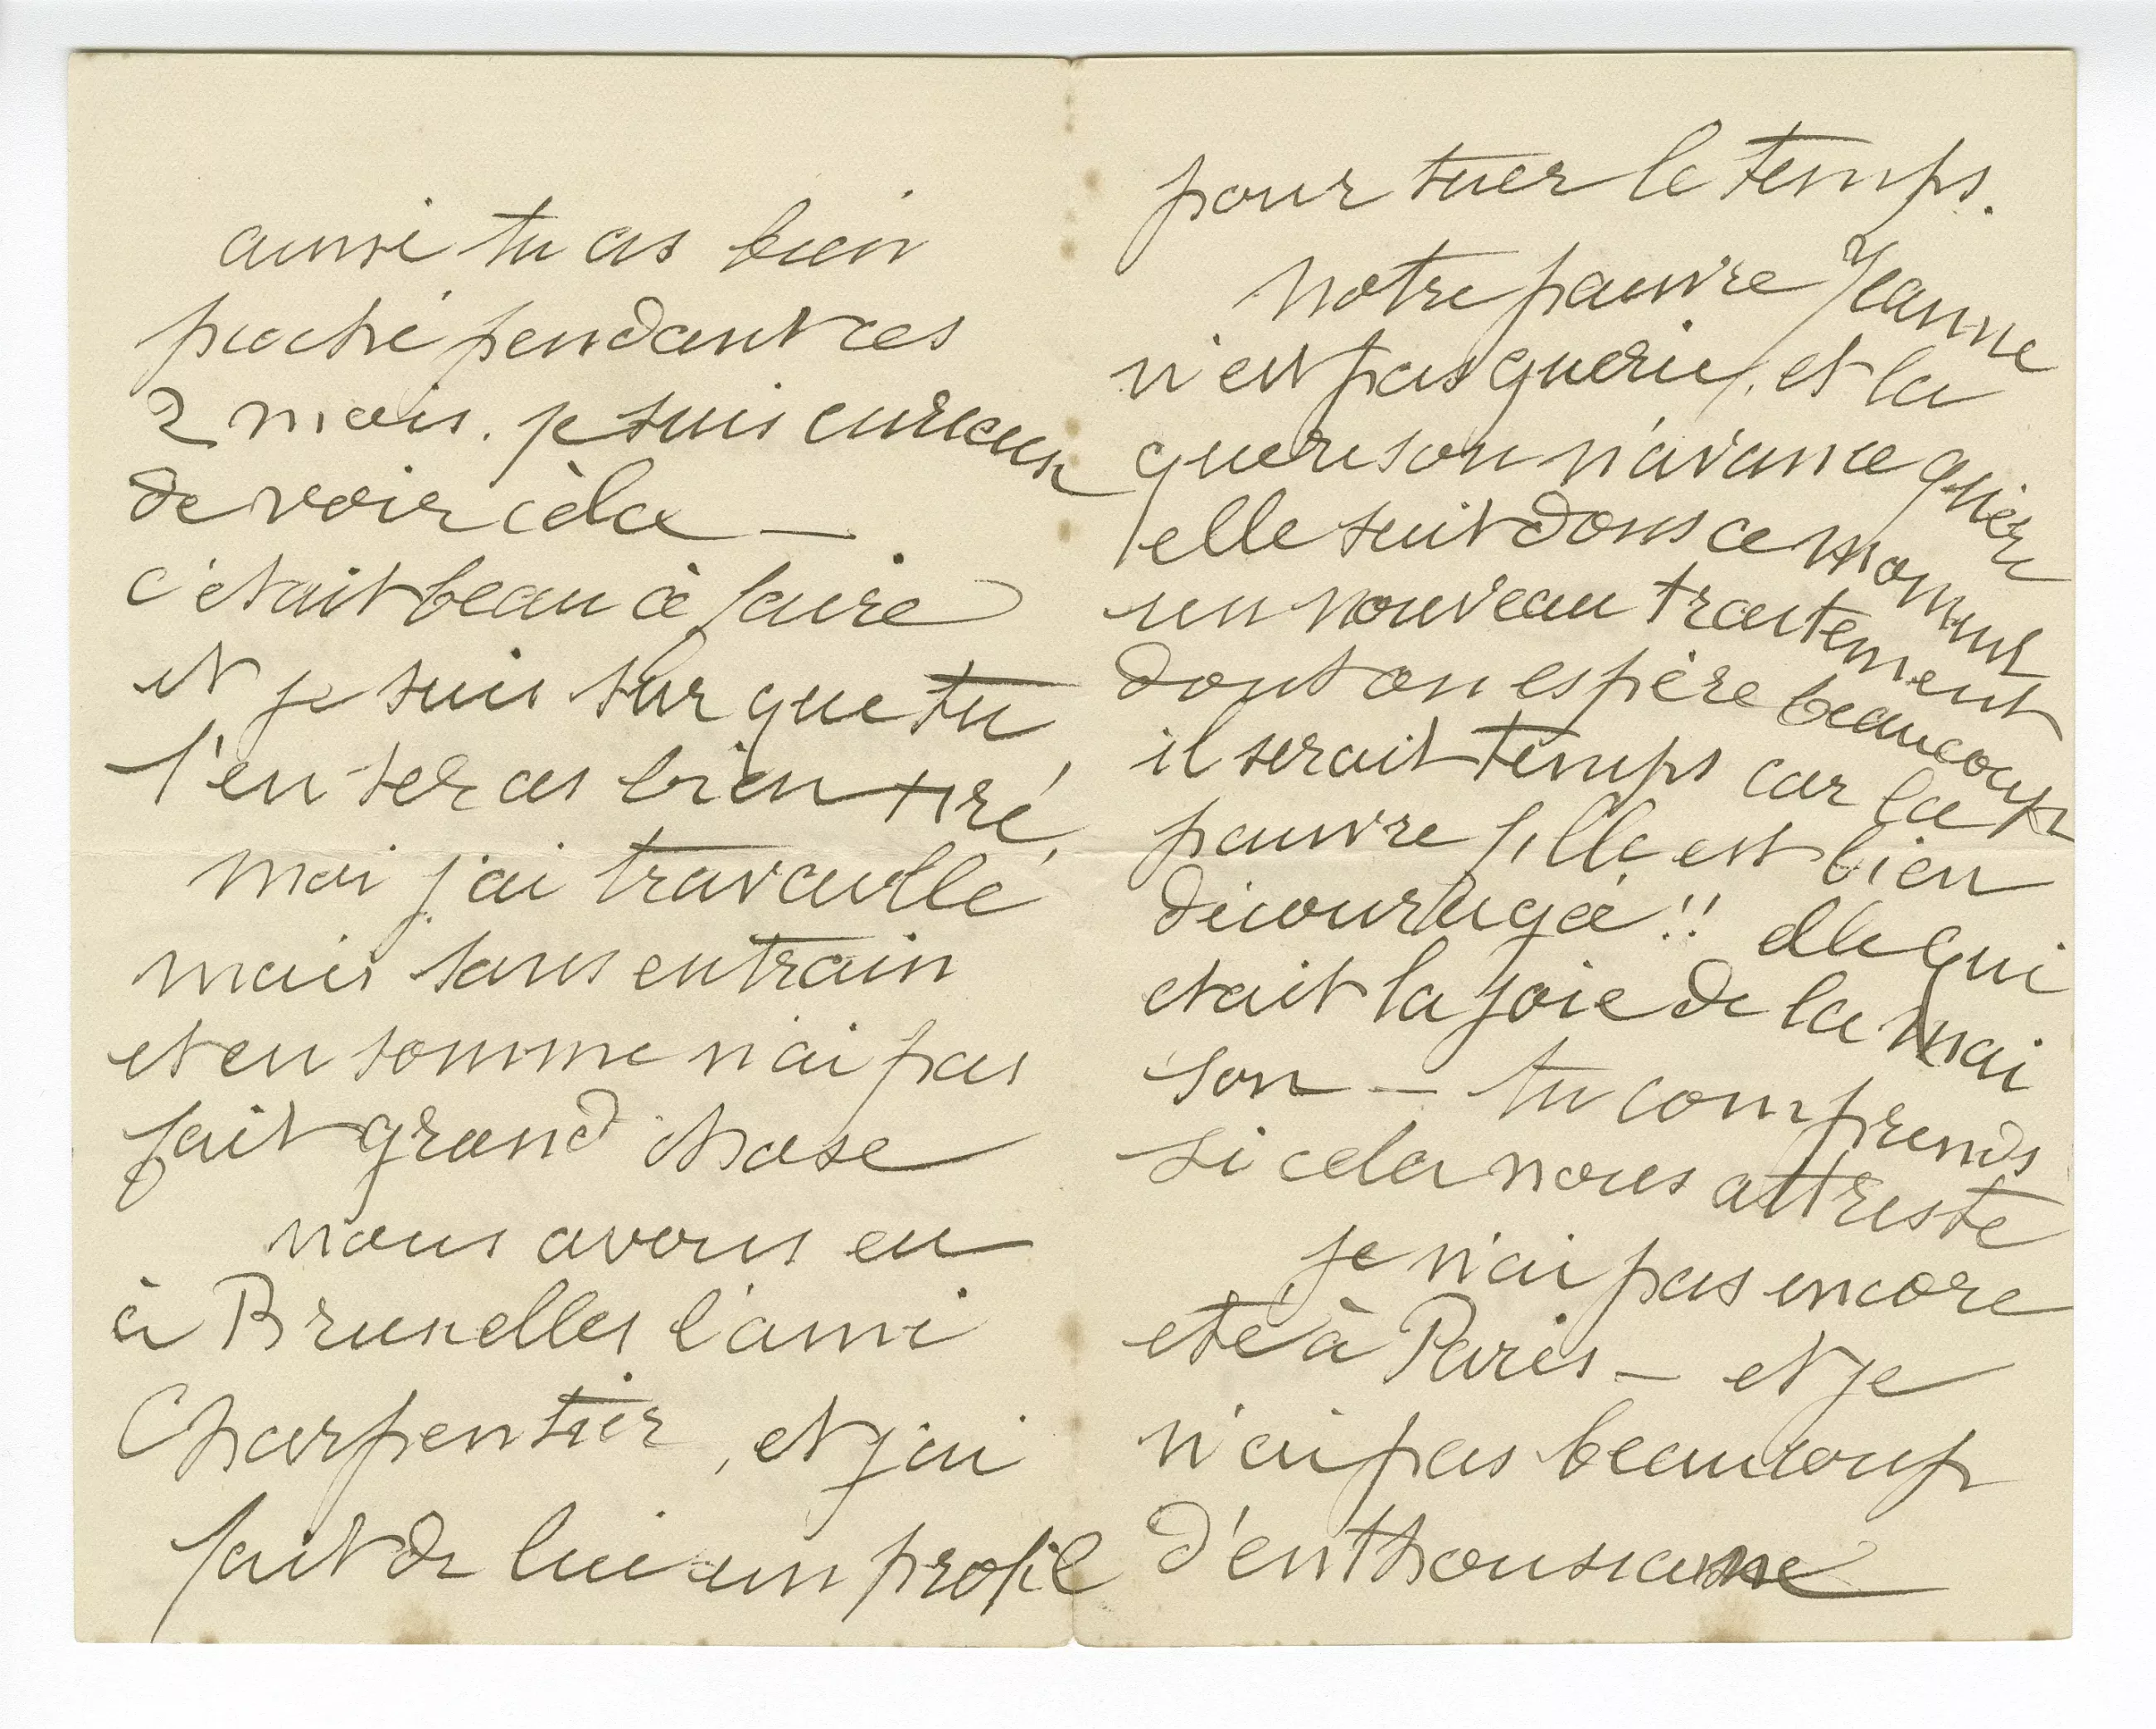 ainsi tu as bien
pioché pendant ces
2 mois. je suis curieux
de voir cela —
c'etait beau à faire
et je suis sur que tu
t'en seras bien tiré,
moi j'ai travaillé
mais sans entrain
et en somme n'ai pas
fait grand chose
nous avons eu
à Bruxelles l'ami
Charpentier, et j'ai
fait de lui un profil
pour tuer le temps.
Notre pauvre Jeanne
n'est pas guérie, et la
guerison n'avance guère
elle suit dans ce moment
un nouveau traitement
dont on espère beaucoup
il serait temps car la
pauvre fille est bien
découragé!! elle qui
etait la joie de la mai
son — tu comprends
si cela nous attriste
je n'ai pas encore
eté à Paris — et je
n'ai pas beaucoup
d'enthousiasme